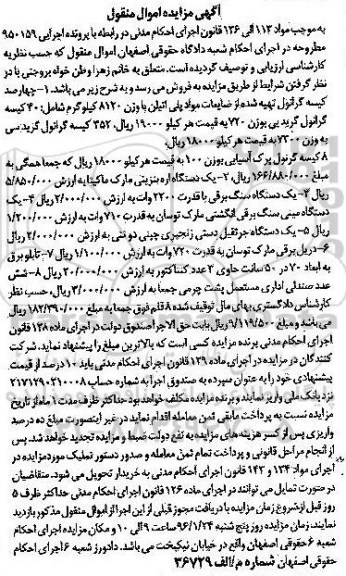 آگهی مزایده اموال منقول
به موجب مواد ۱۱۳ الی ۱۲۶ قانون اجرای احکام مدنی در رابطه با پرونده اجرایی ۹۵۰۱۵۹
مطروحه در اجرای احکام شعبه دادگاه حقوقی اصفهان اموال منقول که حسب نظریه
کارشناسی ارزیابی و توصیف گردیده است. متعلق به خانم زهرا وطن خواه بروجنی با در
نظر گرفتن شرایط از طریق مزایده به فروش می رسد و به شرح زیر می باشد. ۱- چهارصد
کیسه گرانول تهیه شده از ضایعات مواد پلی اتیلن با وزن ۸۱۲۰ کیلوگرم شامل: ۴۰ کیسه
گرانول گرید بی بوزن ۷۲۰ به قیمت هر کیلو ۱۹۰۰۰ ریال، ۳۵۲ کیسه گرانول گرید سی
به وزن ۷۳۰۰ به قیمت هر کیلو ۱۸۰۰۰ ریال،
۸ کیسه گرنول پرک آسیابی بوزن ۱۰۰ به قیمت هر کیلو ۱۸۰۰۰ ریال که جمعا همگی به
مبلغ ۱۶۶/۸۸۰/۰۰۰ ریال، ۲- یک دستگاه اره بنزینی مارک ماکیتا به ارزش ۵/۸۵۰/۰۰۰
ریال ۳- یک دستگاه سنگ برقی با قدرت ۲۲۰۰ وات به ارزش ۲/۰۰۰/۰۰۰ ریال ۴- یک
دستگاه مینی سنگ برقی انگشتی مارک توسان به قدرت ۷۱۰ وات به ارزش ۱/۲۰۰/۰۰۰
ریال ۵- یک دستگاه جرثقیل دستی زنجیری چینی دو تنی به ارزش ۲/۰۰۰/۰۰۰ ریال
۶- دریل برقی مارک توسان به قدرت ۷۲۰ وات به ارزش ۱/۱۰۰/۰۰۰ ریال ۷- تابلو برق
به ابعاد ۷۰ در ۵۰ سانت حاوی ۲ عدد کنتاکتور به ارزش ۲۰/۰۰۰/۰۰۰ ریال ۸- شش
عدد صندلی اداری مستعمل پشت چرمی جمعا به ارزش ۳/۰۰۰/۰۰۰ ریال، حسب نظر
کارشناس دادگستری بهای مال توقیف شده ۸ قلم فوق جمعا به مبلغ ۱۸۲/۳۹۰/۰۰۰ ریال
می باشد و مبلغ ۹/۱۱۹/۵۰۰ ریال بابت حق الاجرا صندوق دولت در اجرای ماده ۱۲۸ قانون
اجرای احکام مدنی برنده مزایده کسی است که بالاترین مبلغ را پیشنهاد نماید. شرکت
کنندگان در مزایده در اجرای ماده ۱۲۹ قانون اجرای احکام مدنی باید ۱۰ درصد از قیمت
پیشنهادی خود را به عنوان سپرده به صندوق اجرا به شماره حساب ۲۱۷۱۲۹۰۲۱۰۰۰۸
نزد بانک ملی واریز نمایند و برنده مزایده مکلف خواهد بود حداکثر ظرف مدت ۱ ماه از تاریخ
مزایده نسبت به پرداخت مابقی ثمن معامله اقدام نماید در غیر اینصورت مبلغ ده درصد
واریزی پس از کسر هزینه های مزایده به نفع دولت ضبط و مزایده تجدید خواهد شد. پس
از انجام مراحل قانونی و پرداخت تمام ثمن معامله و صدور دستور تملیک مورد مزایده در
اجرای مواد ۱۳۴ و ۱۴۳ قانون اجرای احکام مدنی به خریدار تحویل می شود. متقاضیان
در صورت تمایل می توانند در اجرای ماده ۱۲۶ قانون اجرای احکام مدنی حداکثر ظرف ۵
روز قبل از شروع زمان مزایده با دریافت مجوز قبلی از این اجرا از اموال منقول مذکور بازدید
نمایند. زمان مزایده روز پنج شنبه ۹۶/۱/۲۴ ساعت ۹ الی ۱۰ و مکان مزایده اجرای احکام
شعبه ۶ حقوقی اصفهان واقع در خیابان نیکبخت می باشد. دادورز شعبه ۶ اجرای احکام
حقوقی اصفهان شماره م/الف ۳۶۷۲۹